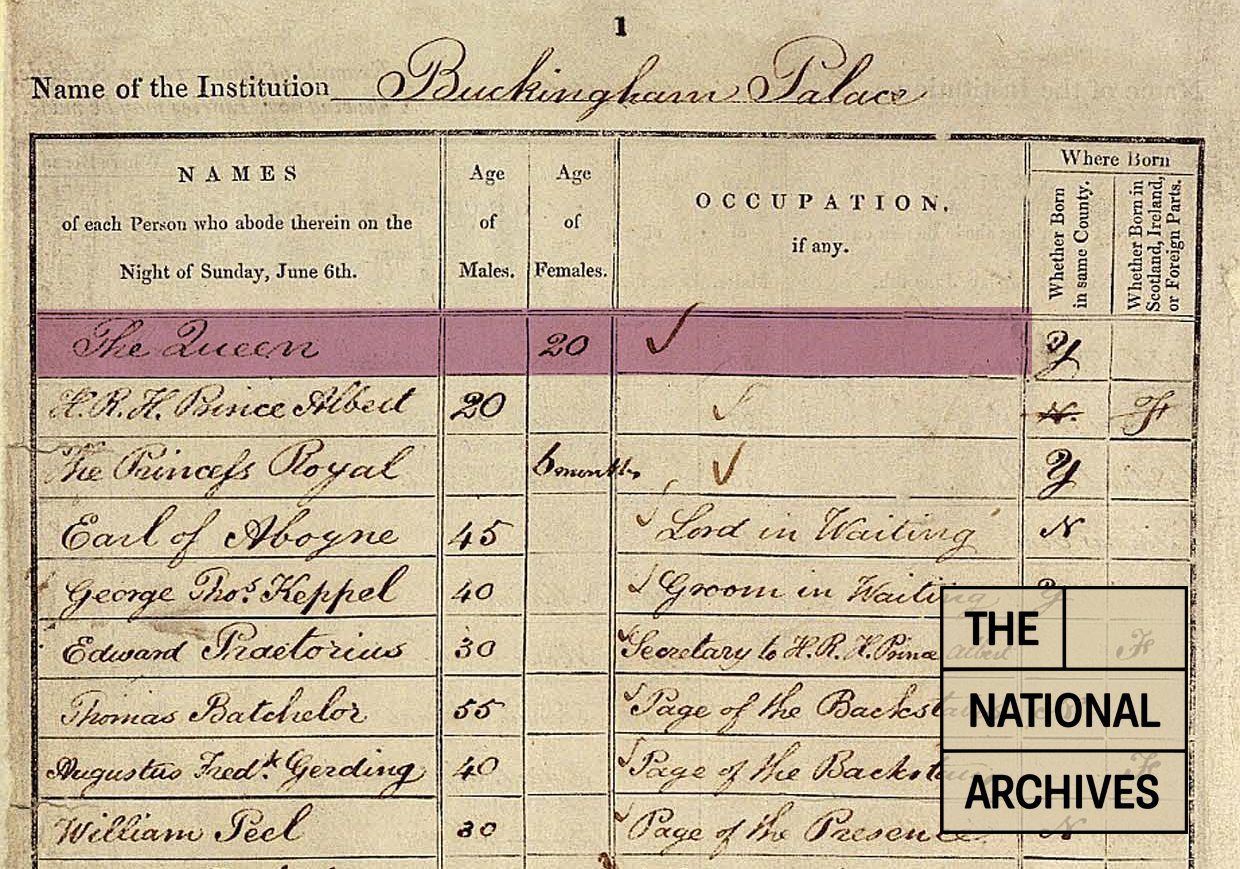 1
Name of the Institution Buckingham Palace
NAMES
of each Person who abode therein on the
Night of Sunday, June 6th.
Age
of
Males.
Age
of
Females.
OCCUPATION,
if any.
Where Born
Whether Born
in same County.
Whether Born in
Scotland, Ireland,
or Foreign Parts.
The Queen 20 Y
H.R.H. Prince Albert 20 N. F
The Princess Royal 6 months Y
Earl of Aboyne 45 Lord in Waiting N
George Thos. Keppel 40 Groom in Waiting Y
Edward Praetorius 30 Secretary to H.R.H. Prince Albert F
Thomas Batchelor 55 Page of the Backstairs
Augustus Fredk. Gerding 40 Page of the Backstairs F
William Peel 30 Page of the Presence N
THE
NATIONAL
ARCHIVES